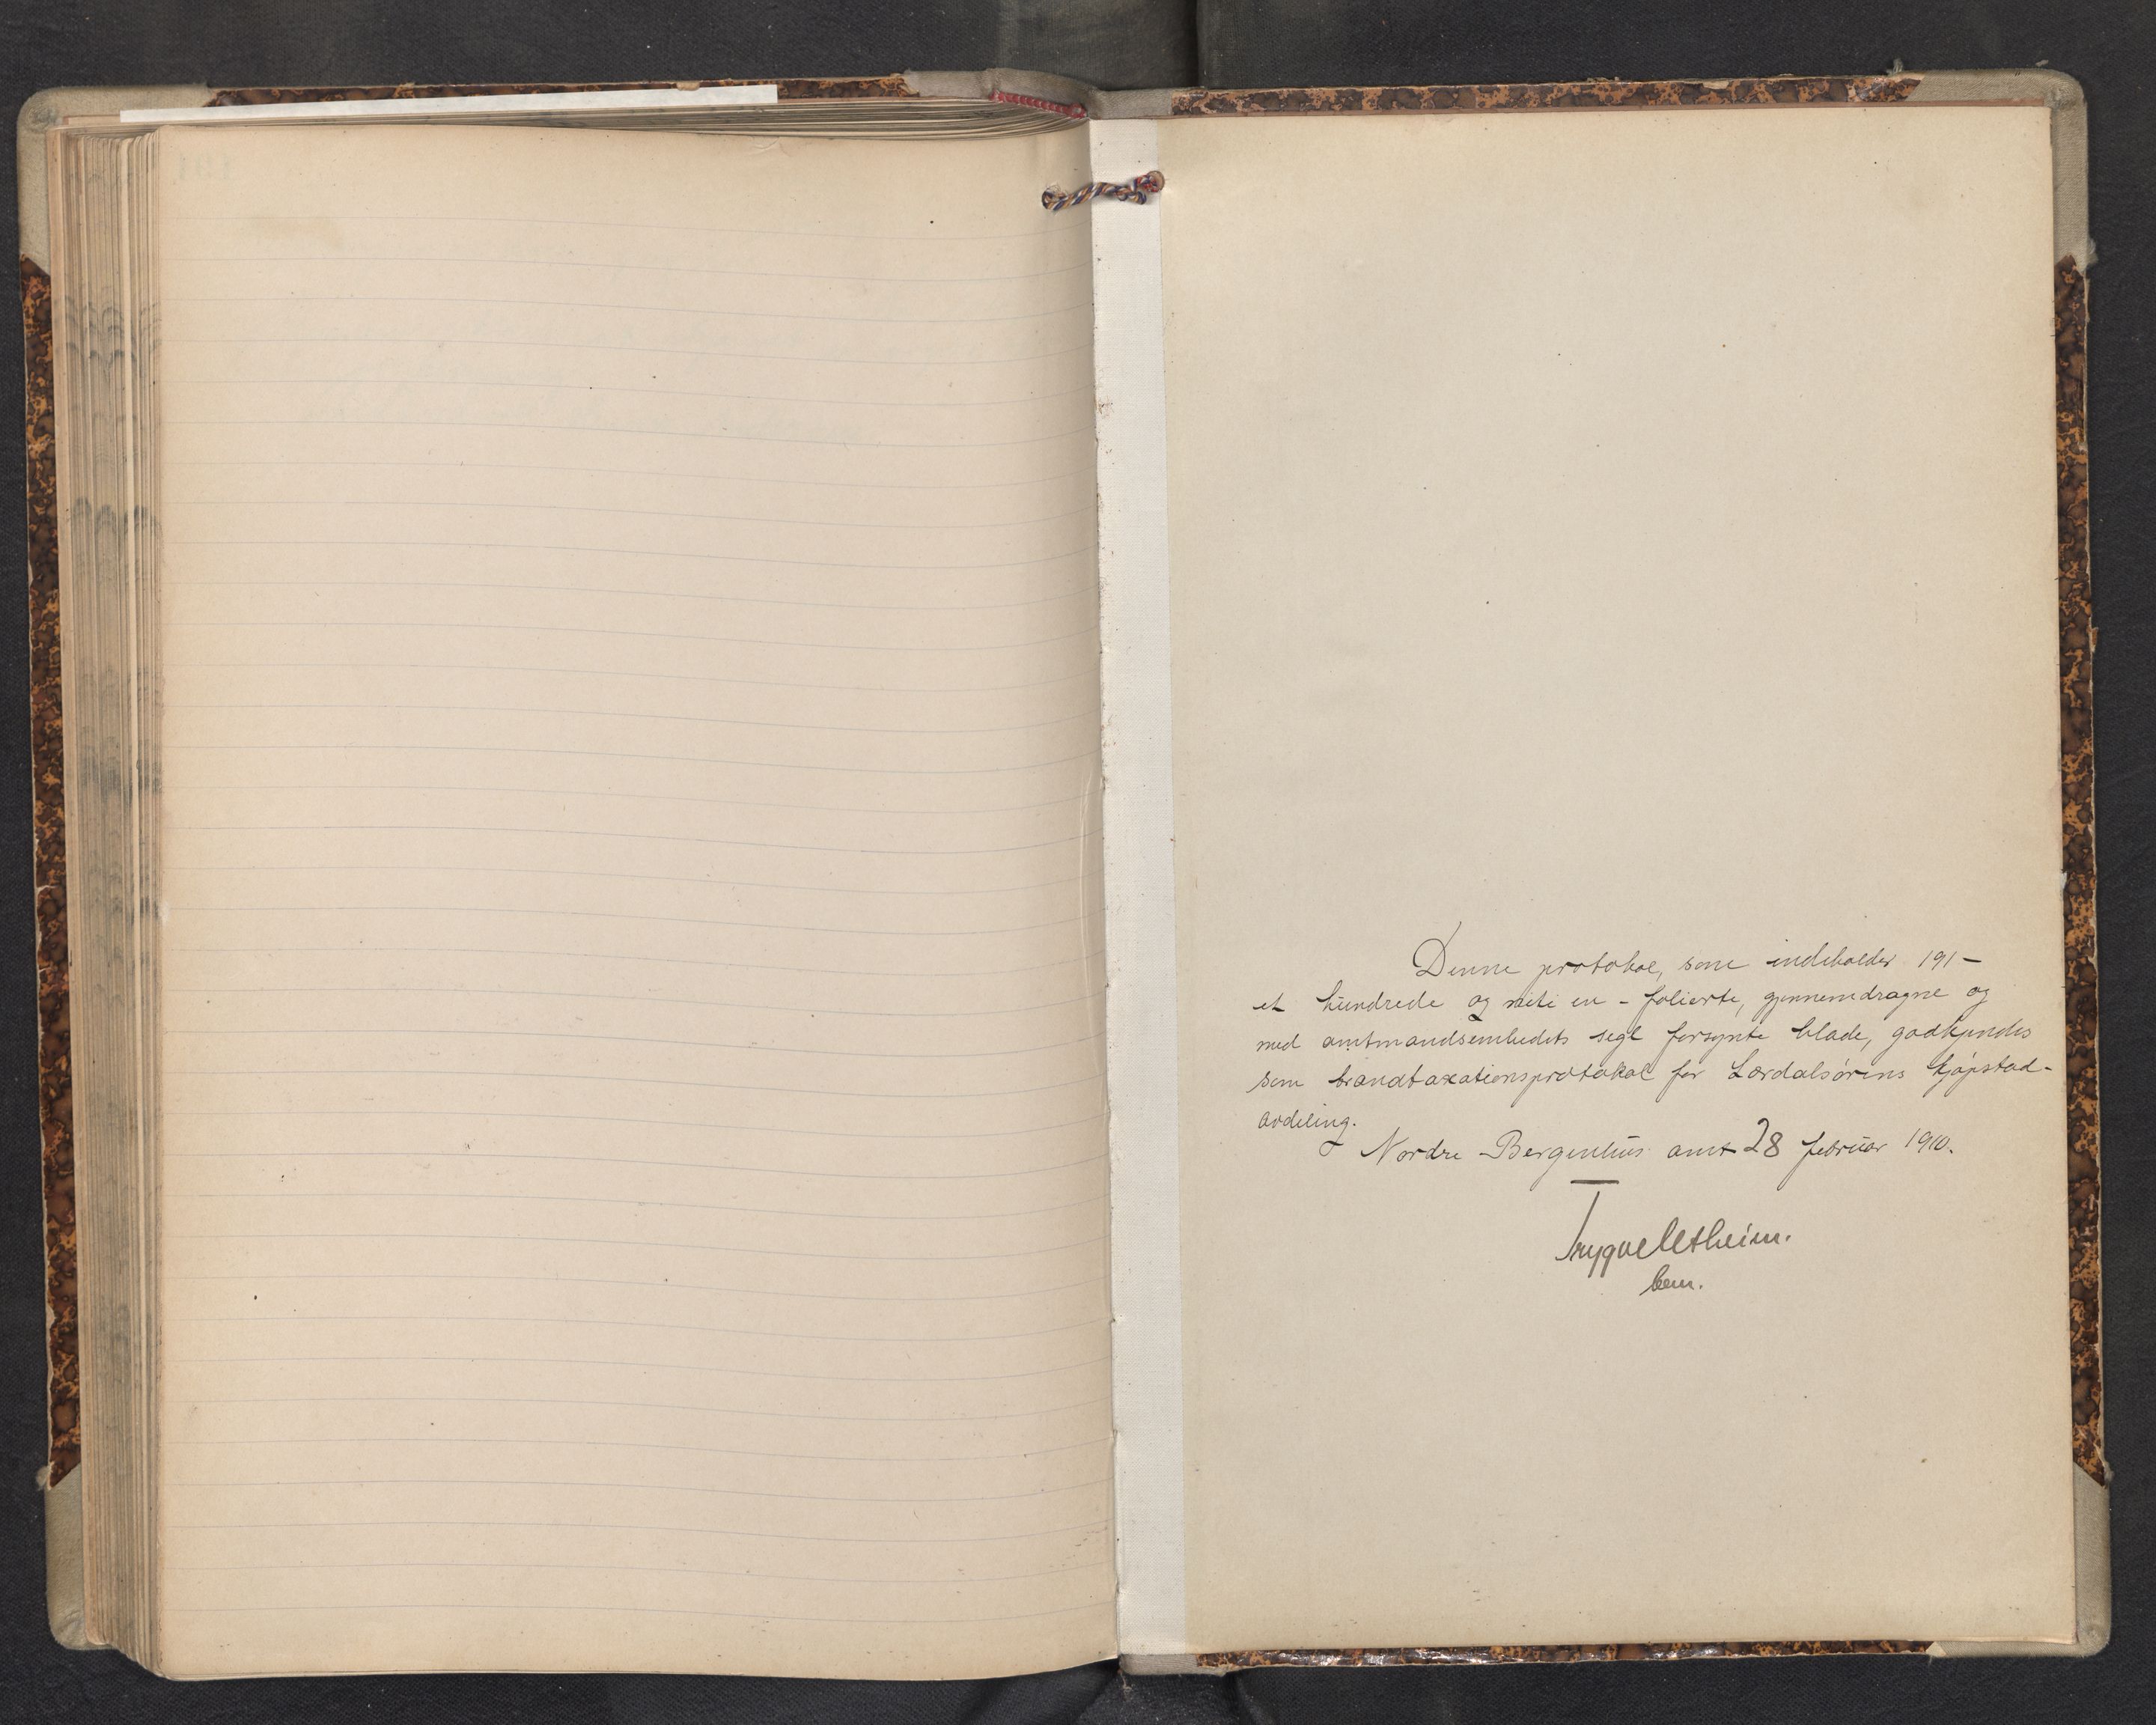 Denne protokol, som indeholder 191 -
et hundrede og niti en - folierte, gjennemdragne og
med amtmandsembedets segl forsynte blade, godkjendes
som brandtaxationsprotokol for Lærdalsørens kjøpstad-
avdeling.
Nordre Bergenhus amt 28 februar 1910.
Trygve Utheim.
bem.